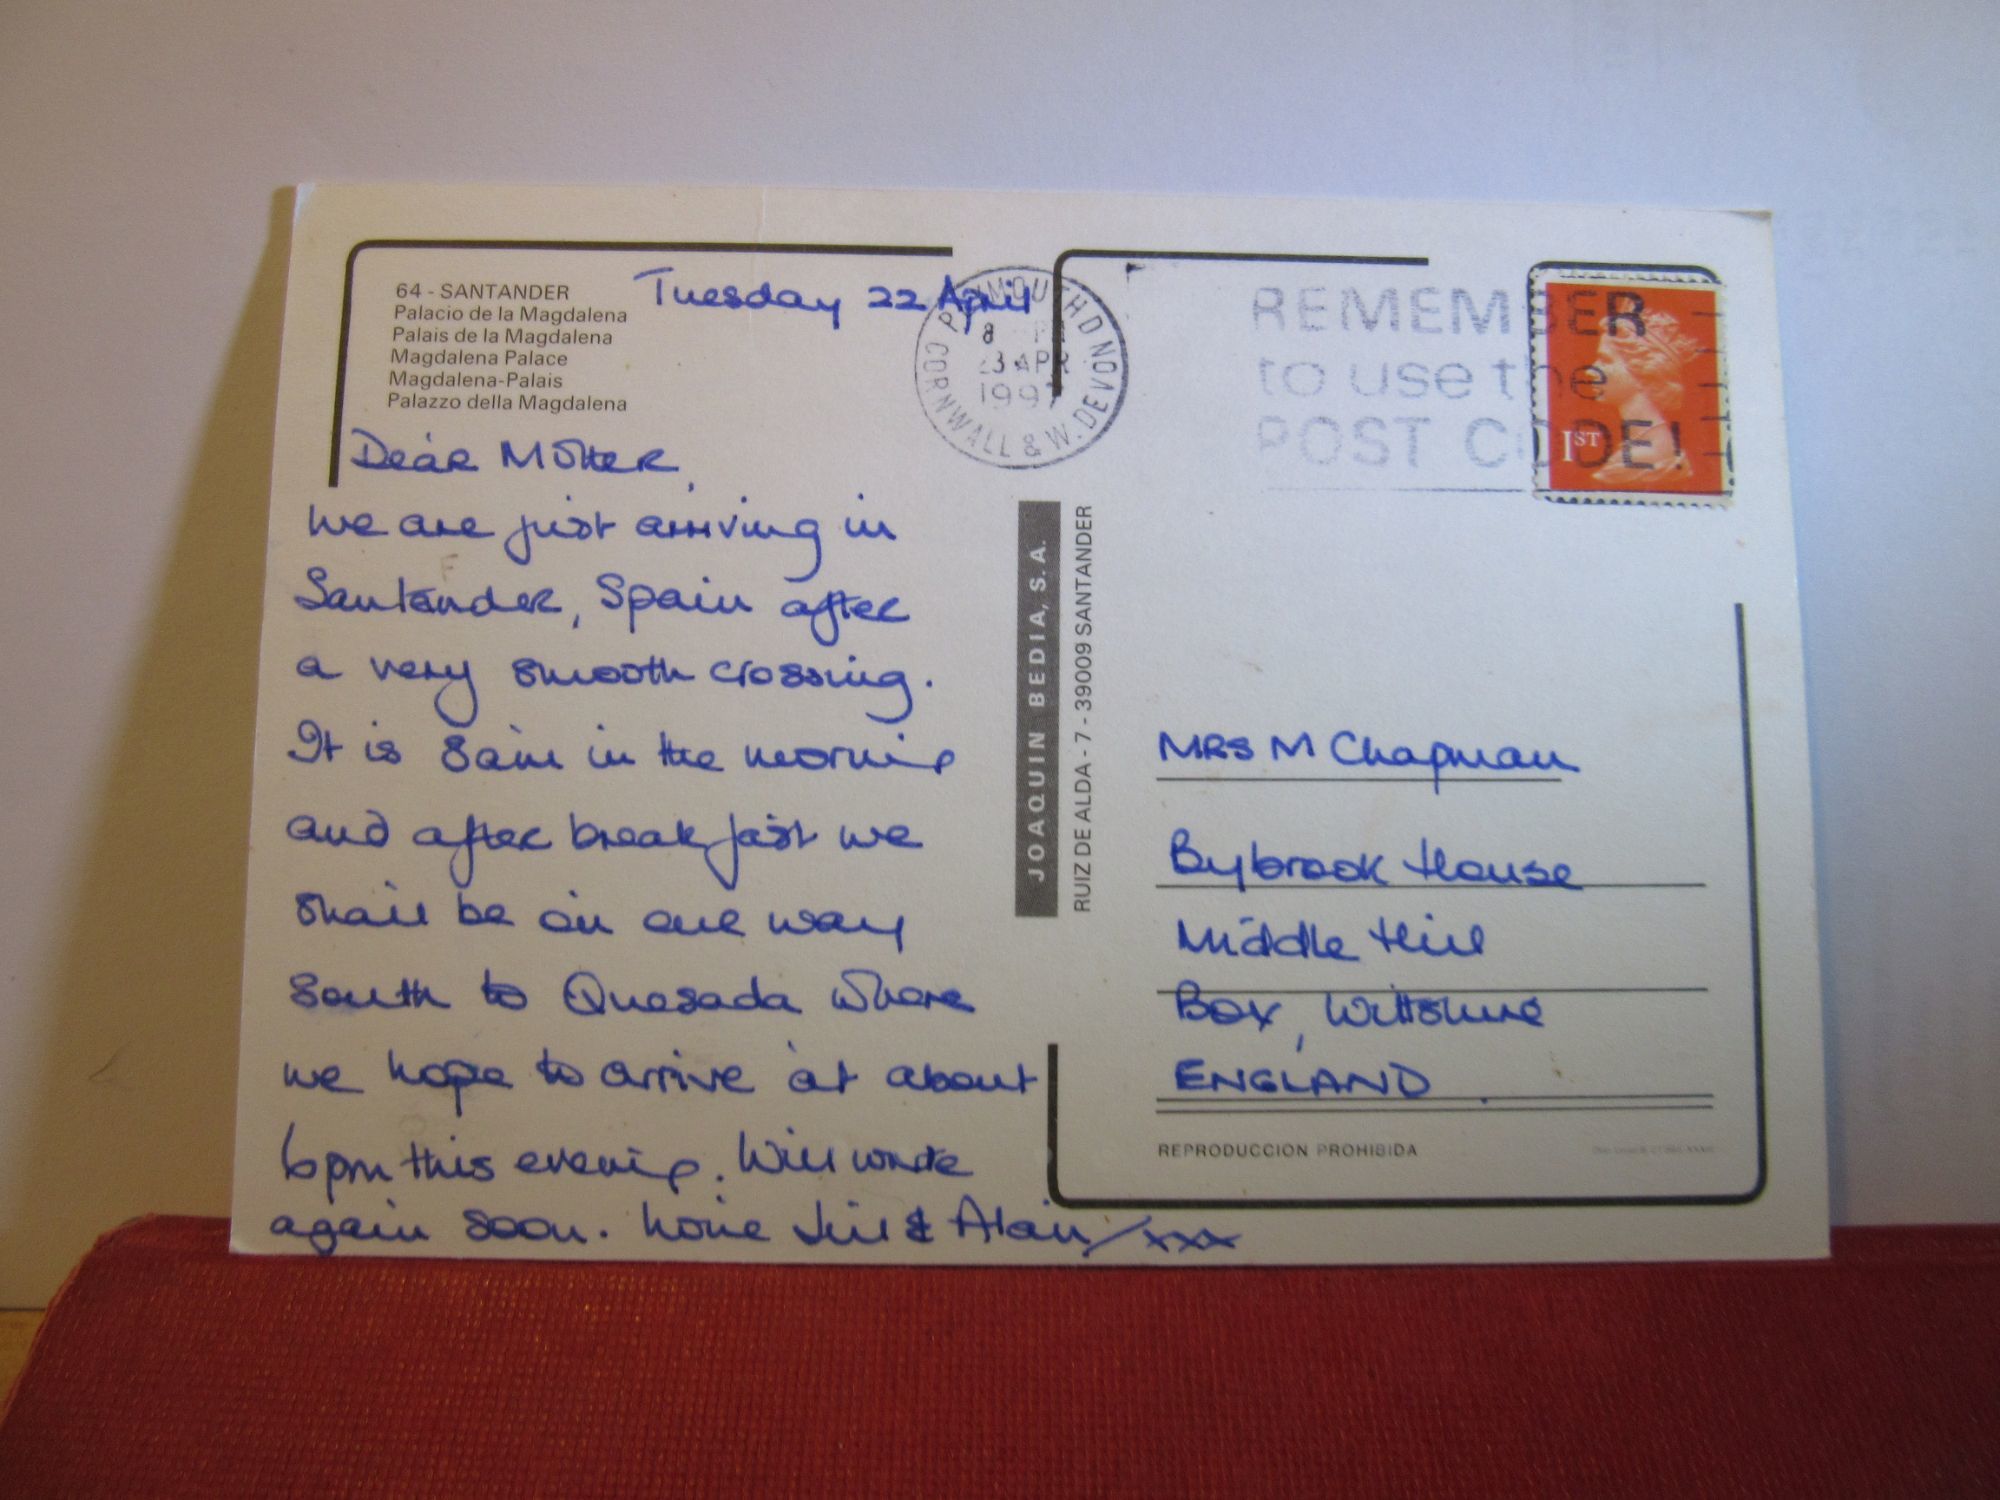 64 - SANTANDER
Palacio de la Magdalena
Palais de la Magdalena
Magdalena Palace
Magdalena-Palais
Palazzo della Magdalena
Tuesday 22 April
Dear Mother,
We are just arriving in
Santander, Spain after
a very smooth crossing.
It is 8am in the morning
and after breakfast we
shall be on our way
south to Quesada where
we hope to arrive at about
6pm this evening. Will write
again soon. Love Jill & Alan/xxx
PLYMOUTH DEVON
8
23 APR
1997
CORNWALL & W. DEVON
REMEMBER
to use the
POST CODE!
1ST
JOAQUIN BEDIA, S.A.
RUIZ DE ALDA - 7 - 39009 SANTANDER
MRS M Chapman
Bybrook House
Middle Hill
Box, Wiltshire
ENGLAND
REPRODUCCION PROHIBIDA